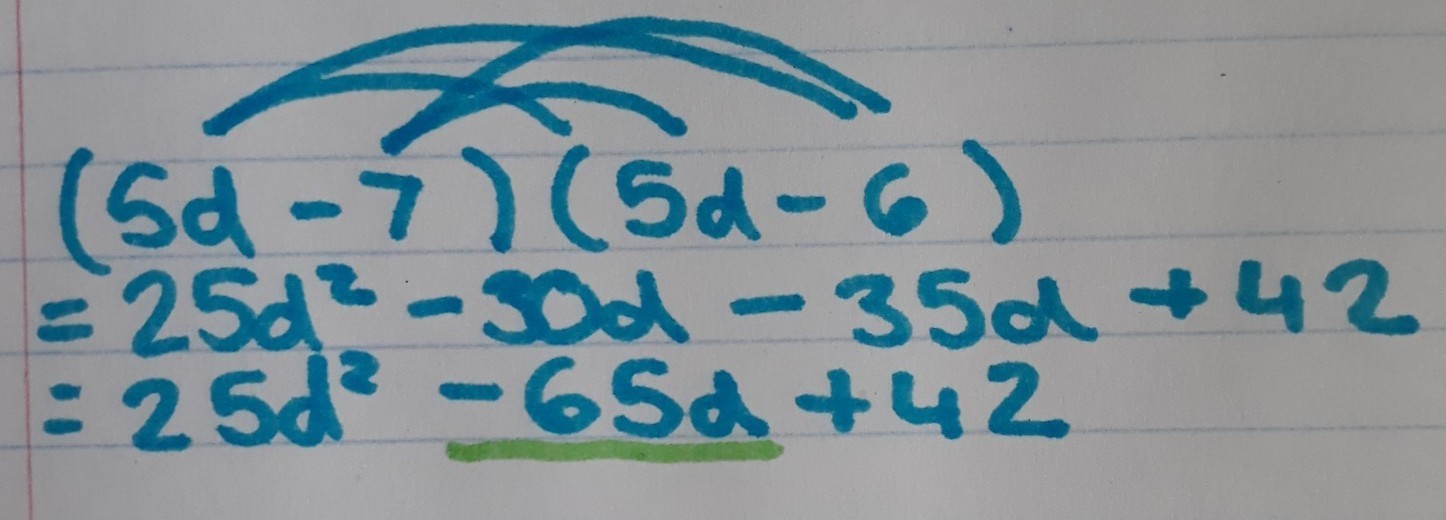 (5d - 7)(5d - 6)
= 25d² - 30d - 35d + 42
= 25d² - 65d + 42